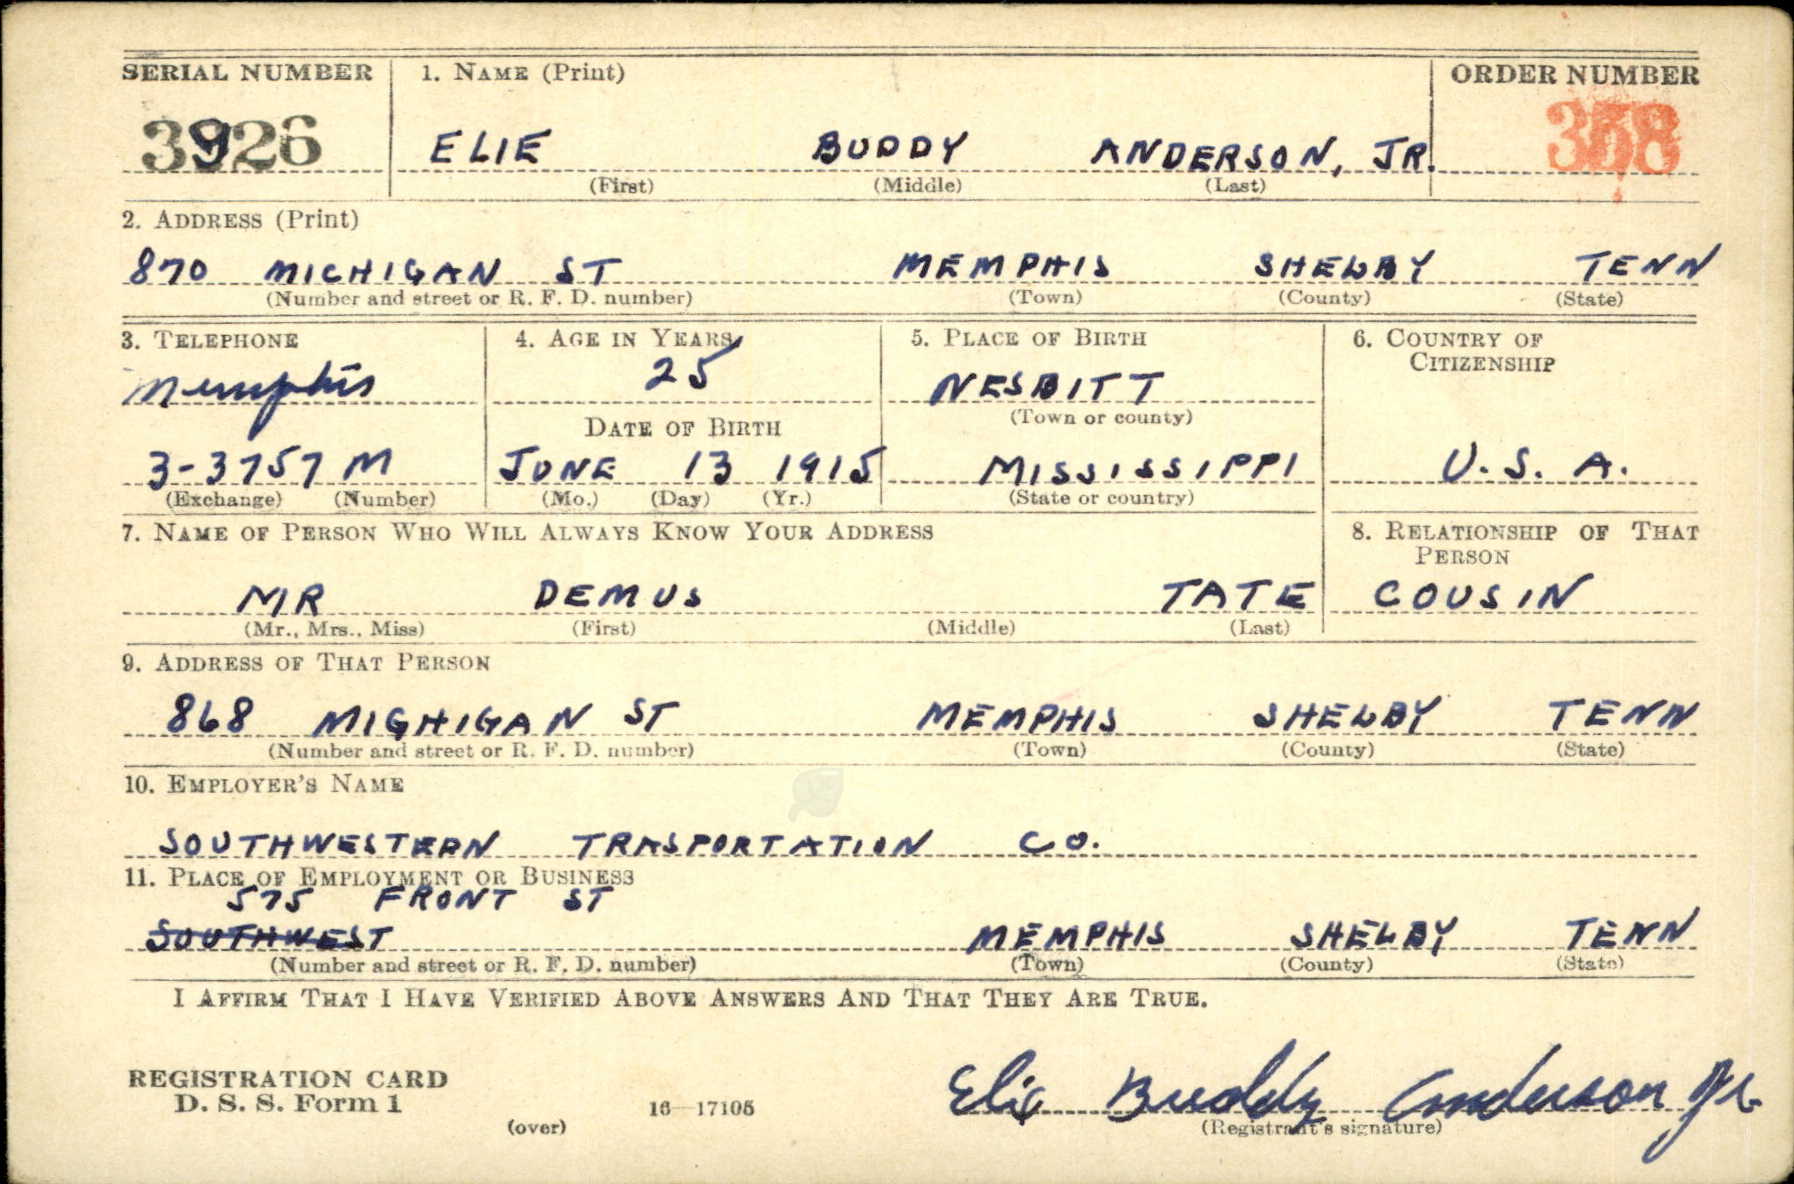 SERIAL NUMBER 1. NAME (Print) ORDER NUMBER
3926 ELIE BUDDY ANDERSON, JR. 358
(First) (Middle) (Last)
2. ADDRESS (Print)
870 MICHIGAN ST MEMPHIS SHELBY TENN
(Number and street or R. F. D. number) (Town) (County) (State)
3. TELEPHONE 4. AGE IN YEARS 5. PLACE OF BIRTH 6. COUNTRY OF CITIZENSHIP
Memphis 25 NESBITT
DATE OF BIRTH (Town or county)
3-3757 M JUNE 13 1915 MISSISSIPPI U. S. A.
(Exchange) (Number) (Mo.) (Day) (Yr.) (State or country)
7. NAME OF PERSON WHO WILL ALWAYS KNOW YOUR ADDRESS 8. RELATIONSHIP OF THAT PERSON
MR DEMUS TATE COUSIN
(Mr., Mrs., Miss) (First) (Middle) (Last)
9. ADDRESS OF THAT PERSON
868 MIGHIGAN ST MEMPHIS SHELBY TENN
(Number and street or R. F. D. number) (Town) (County) (State)
10. EMPLOYER'S NAME
SOUTHWESTERN TRASPORTATION CO.
11. PLACE OF EMPLOYMENT OR BUSINESS
575 FRONT ST
SOUTHWEST MEMPHIS SHELBY TENN
(Number and street or R. F. D. number) (Town) (County) (State)
I AFFIRM THAT I HAVE VERIFIED ABOVE ANSWERS AND THAT THEY ARE TRUE.
REGISTRATION CARD
D. S. S. Form 1 Elie Buddy Anderson Jr
(over) 16—17105 (Registrant's signature)